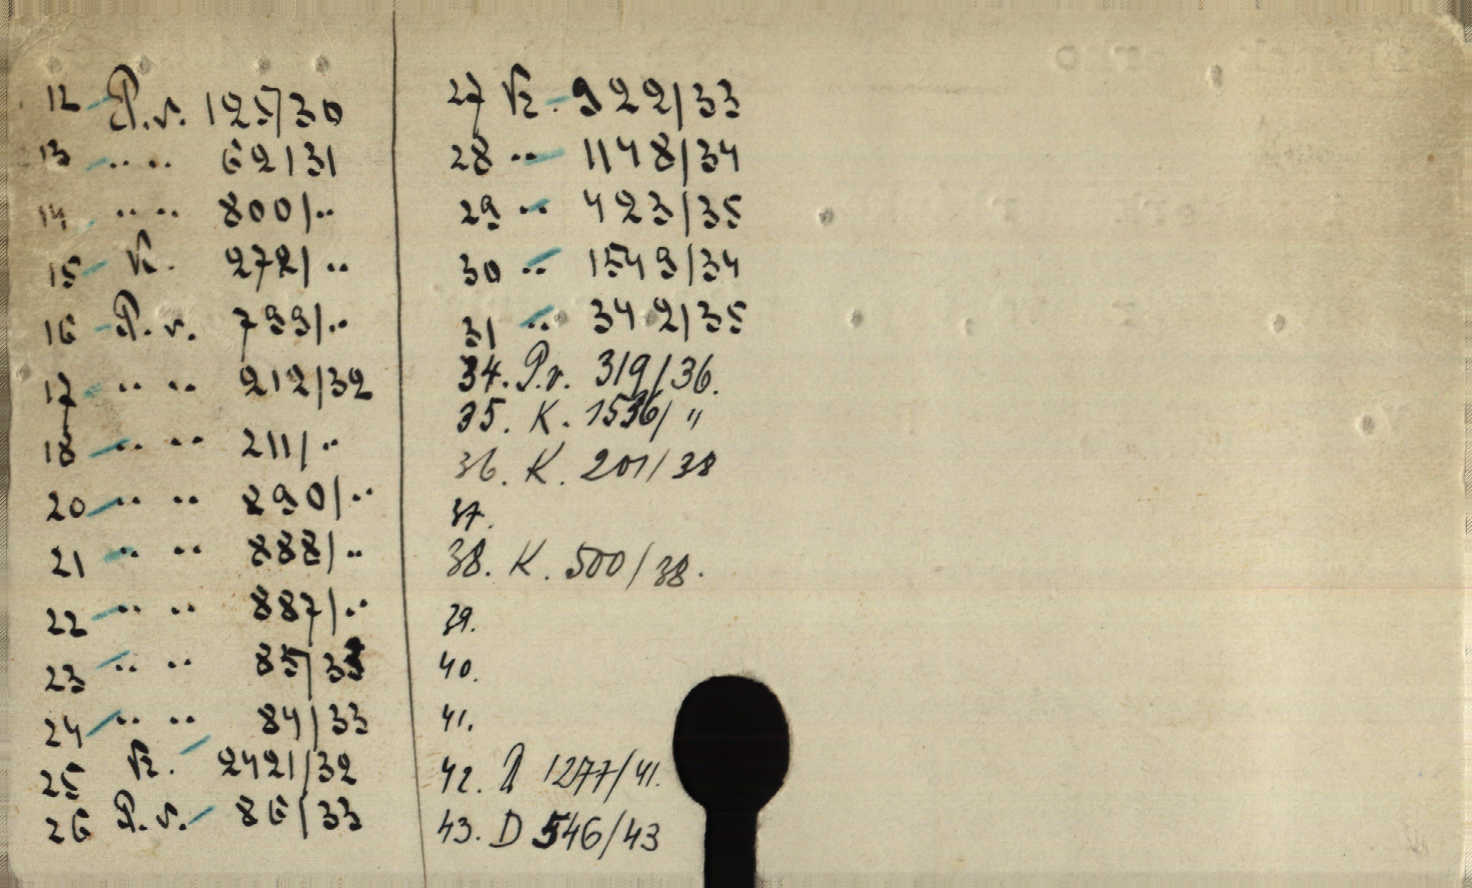 12 P.r. 125/30
13 .. .. 62/31
14 .. .. 800/..
15 K. 272/..
16 P.r. 799/..
17 .. .. 212/32
18 .. .. 211/..
20 .. .. 890/..
21 .. .. 888/..
22 .. .. 887/..
23 .. .. 85/33
24 .. .. 84/33
25 K. 2421/32
26 P.r. 86/33
27 K. 922/33
28 .. 1148/34
29 .. 423/35
30 .. 1549/34
31 .. 342/35
34. P.r. 319/36.
35. K. 1536/ "
36. K. 201/38
37.
38. K. 500/38.
39.
40.
41.
42. 1277/41.
43. D 546/43